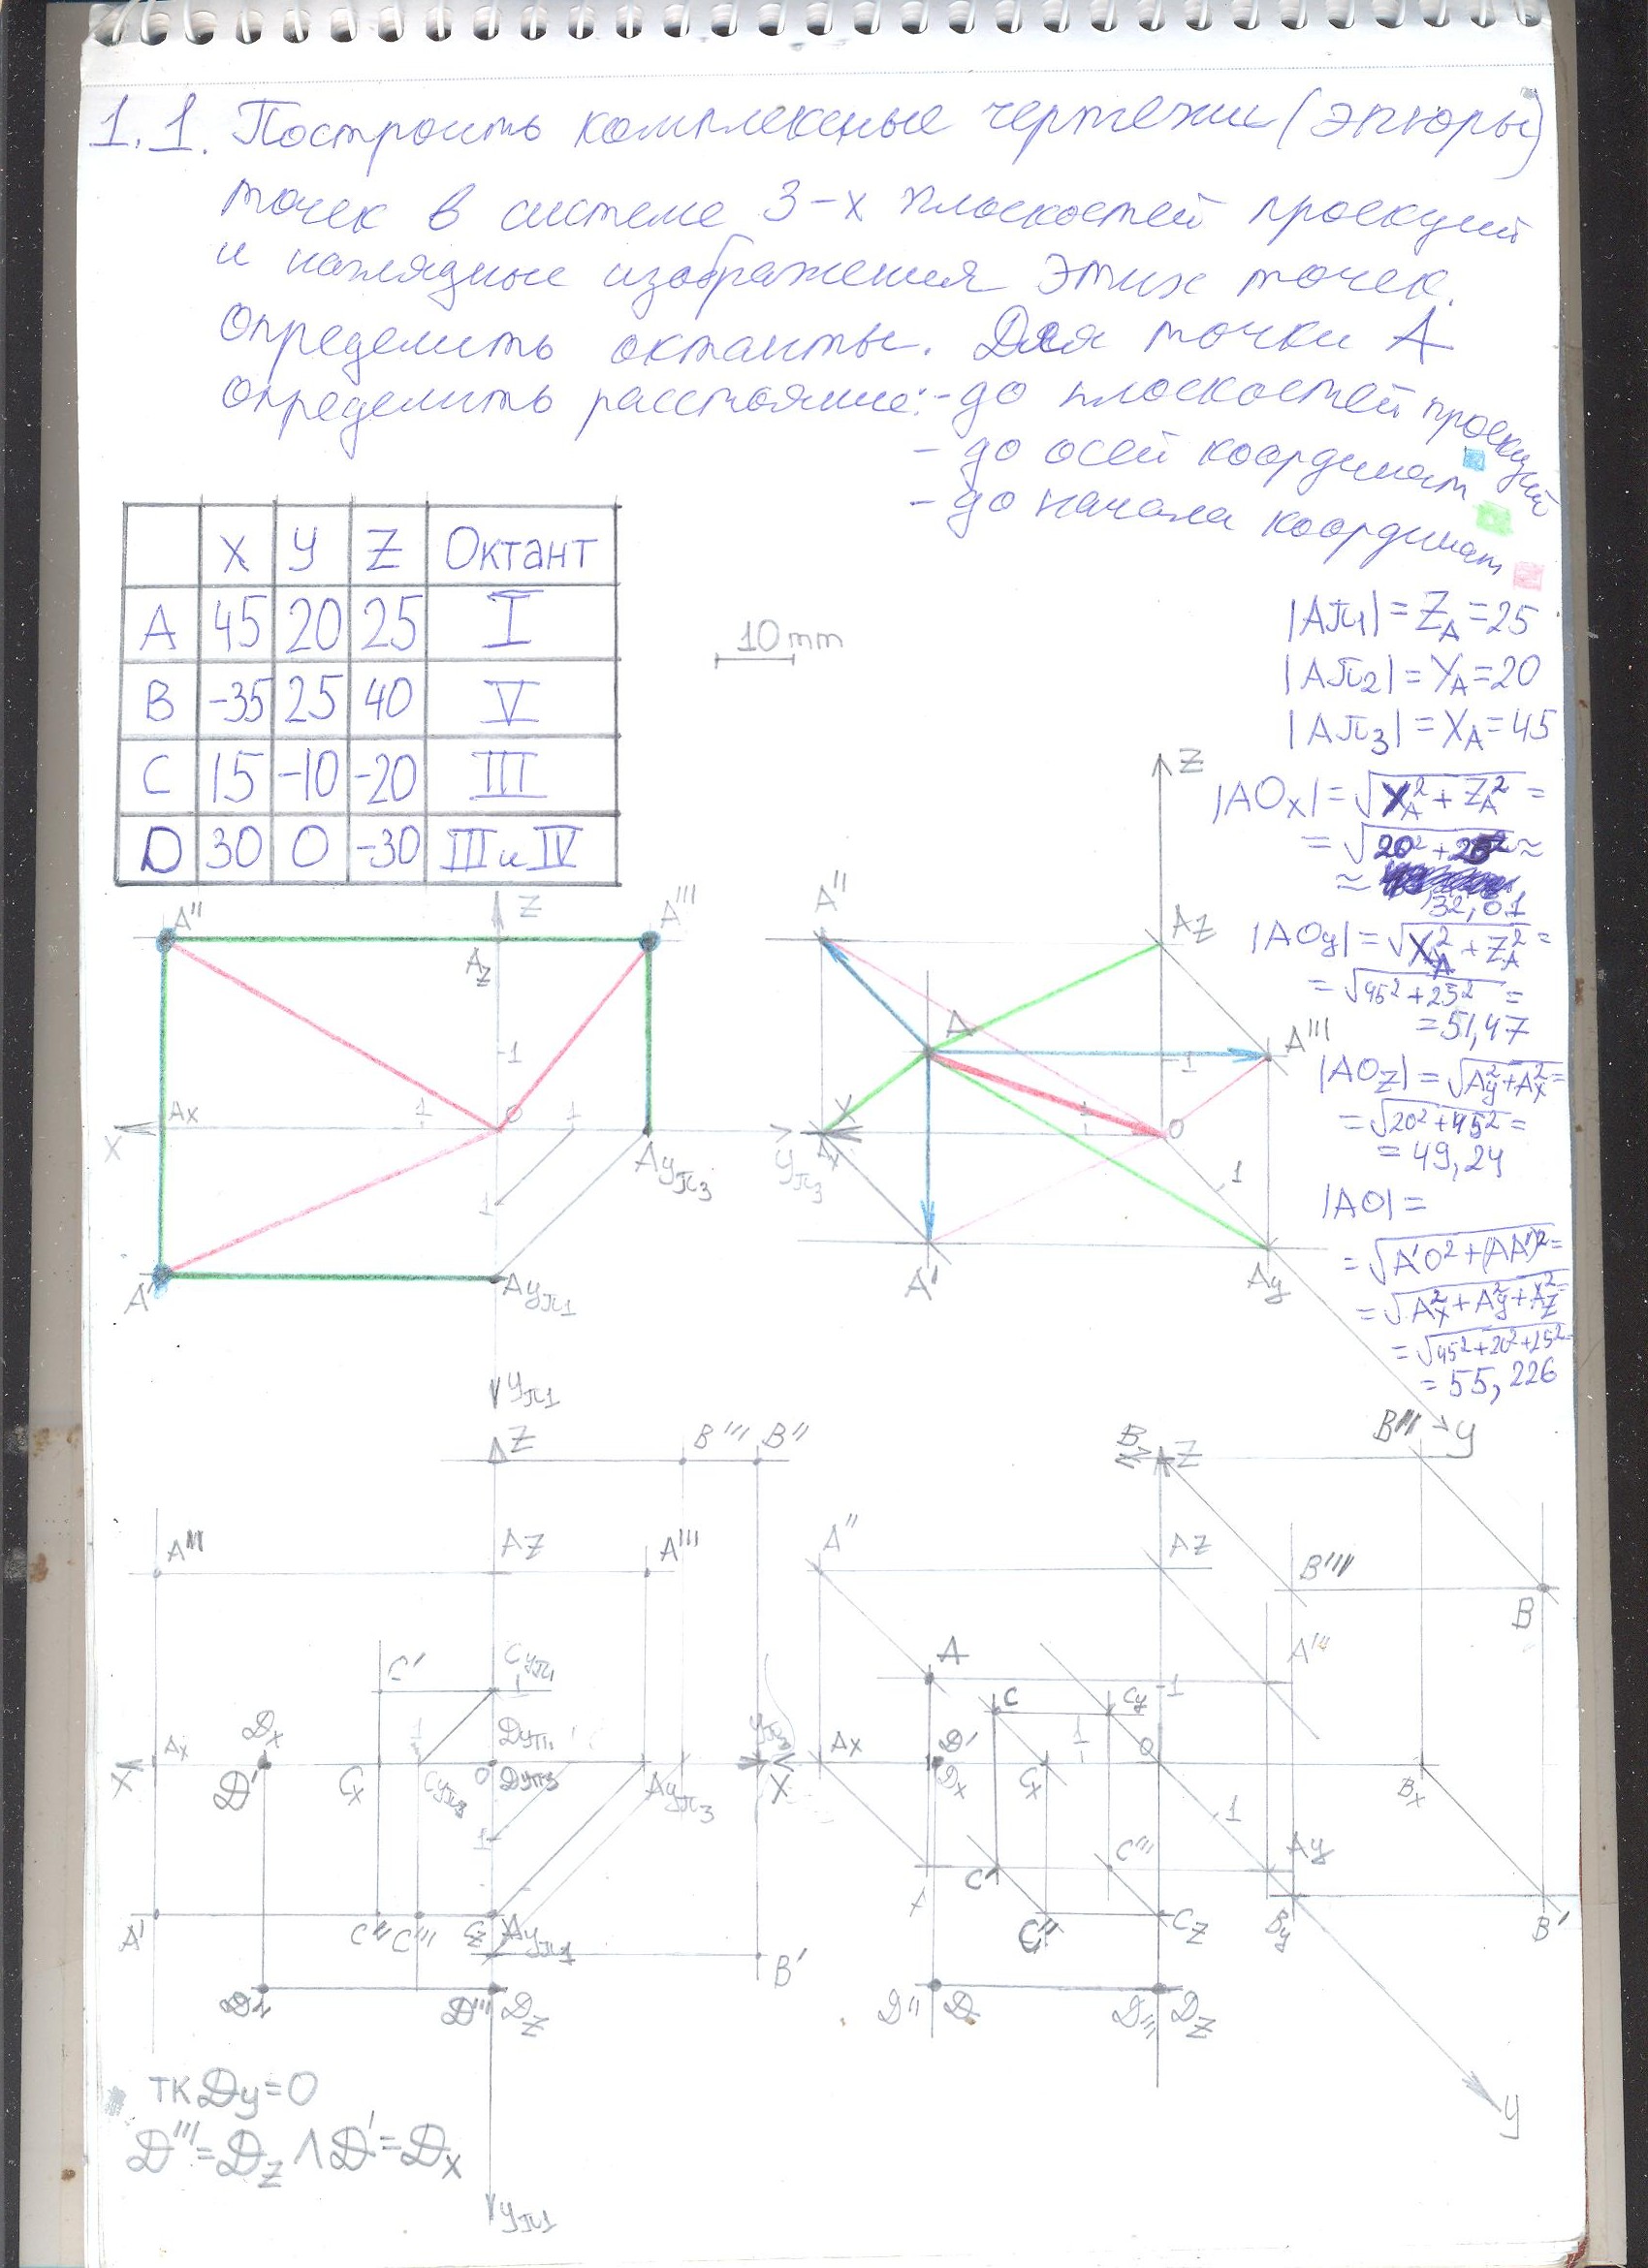 1.1. Построить комплексные чертежи (эпюры)
точек в системе 3-х плоскостей проекций
и наглядные изображения этих точек.
Определить октанты. Для точки А
определить расстояние: - до плоскостей проекций
- до осей координат
- до начала координат
X Y Z Октант
A 45 20 25 I
B -35 25 40 V
C 15 -10 -20 III
D 30 0 -30 III и IV
10 mm
|Aπ1| = ZA = 25
|Aπ2| = YA = 20
|Aπ3| = XA = 45
|AOx| = √ + ZA² =
= √20² + 25² ≈
≈ 32,01
|AOy| = √XA² + ZA² =
= √45² + 25² =
= 51,47
|AOZ| = √Ay² + Ax² =
= √20² + 45² =
= 49,24
|AO| =
= √A'O² + (AA')² =
= √Ax² + Ay² + Az²
= √45² + 20² + 25² =
= 55,226
A'' Z A'''
Az
1
Ax 1 O 1
X Ayπ3 yπ3
1
A' Ayπ1
yπ1
Z
A'' Az
A A'''
1
X Ax 1 O
1
A' Ay
y
Z B''' B''
A''' Az A'''
C' Cyπ1
1
Dx Dyπ1 yπ3
X Ax 1 O
D' Cx Cyπ3 Dyπ3 Ayπ3
1
A' C'' C''' Cz Ayπ1
B'
D''' Dz
yπ1
Bz Z B'''
A'' Az B''''
B
A A'''
C Cy 1
X Ax D' 1 O
Dx Cx Bx
1
C' C''' Ay
C'' Cz By B'
D'' D Dz
y
тк Dy = 0
D''' = Dz ∧ D' = Dx